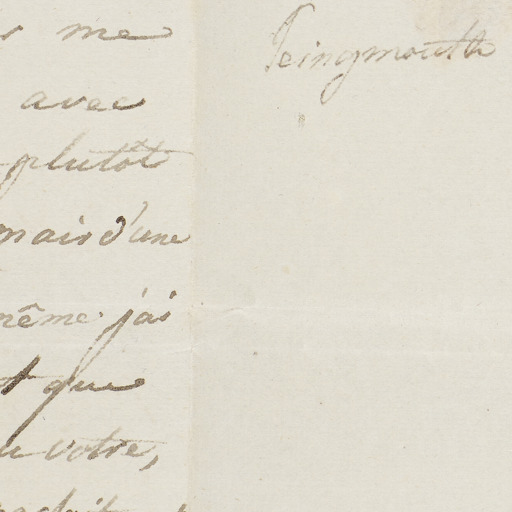 me
avec
plutôt
mais d'une
même j'ai
que
votre,
Teingmouth